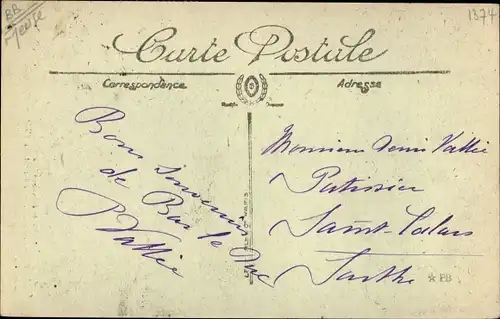 BB
Meuse
1374
Carte Postale
Correspondance
Adresse
Bons souvenirs
de Bar le Duc
P Vallée
Monsieur Denis Vallée
Patissier
Saint-Calais
Sarthe
BB